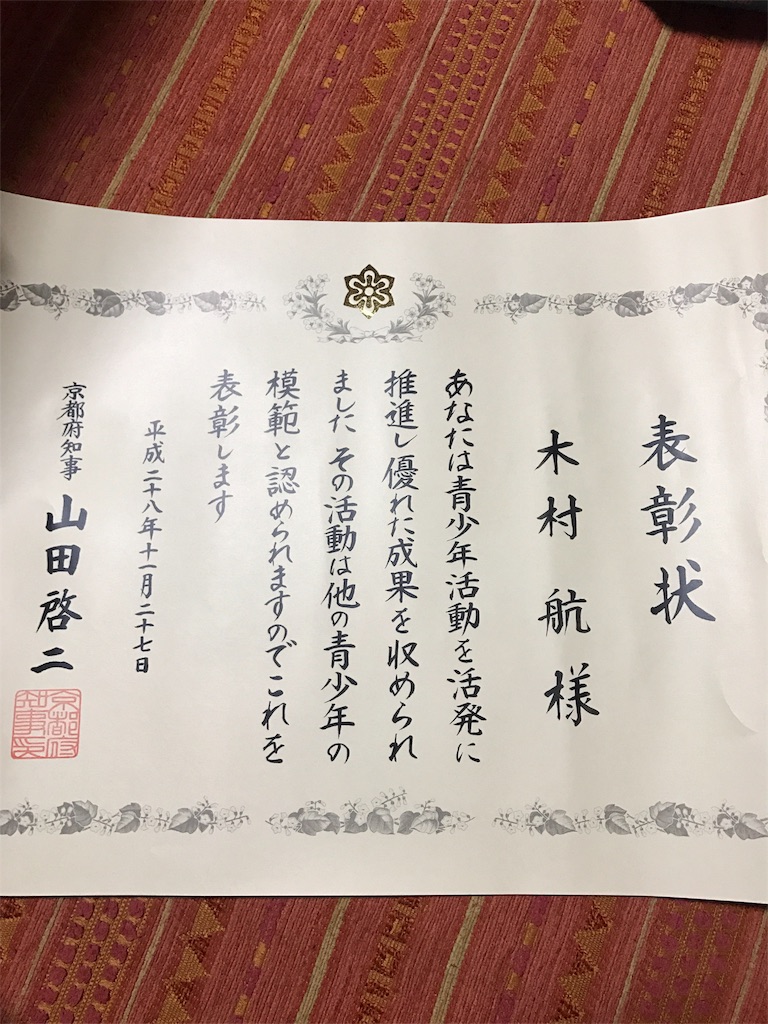 表彰状
木村 航 様
あなたは青少年活動を活発に
推進し優れた成果を収められ
ました その活動は他の青少年の
模範と認められますのでこれを
表彰します
平成二十八年十一月二十七日
京都府知事 山田啓二
京都府知事印